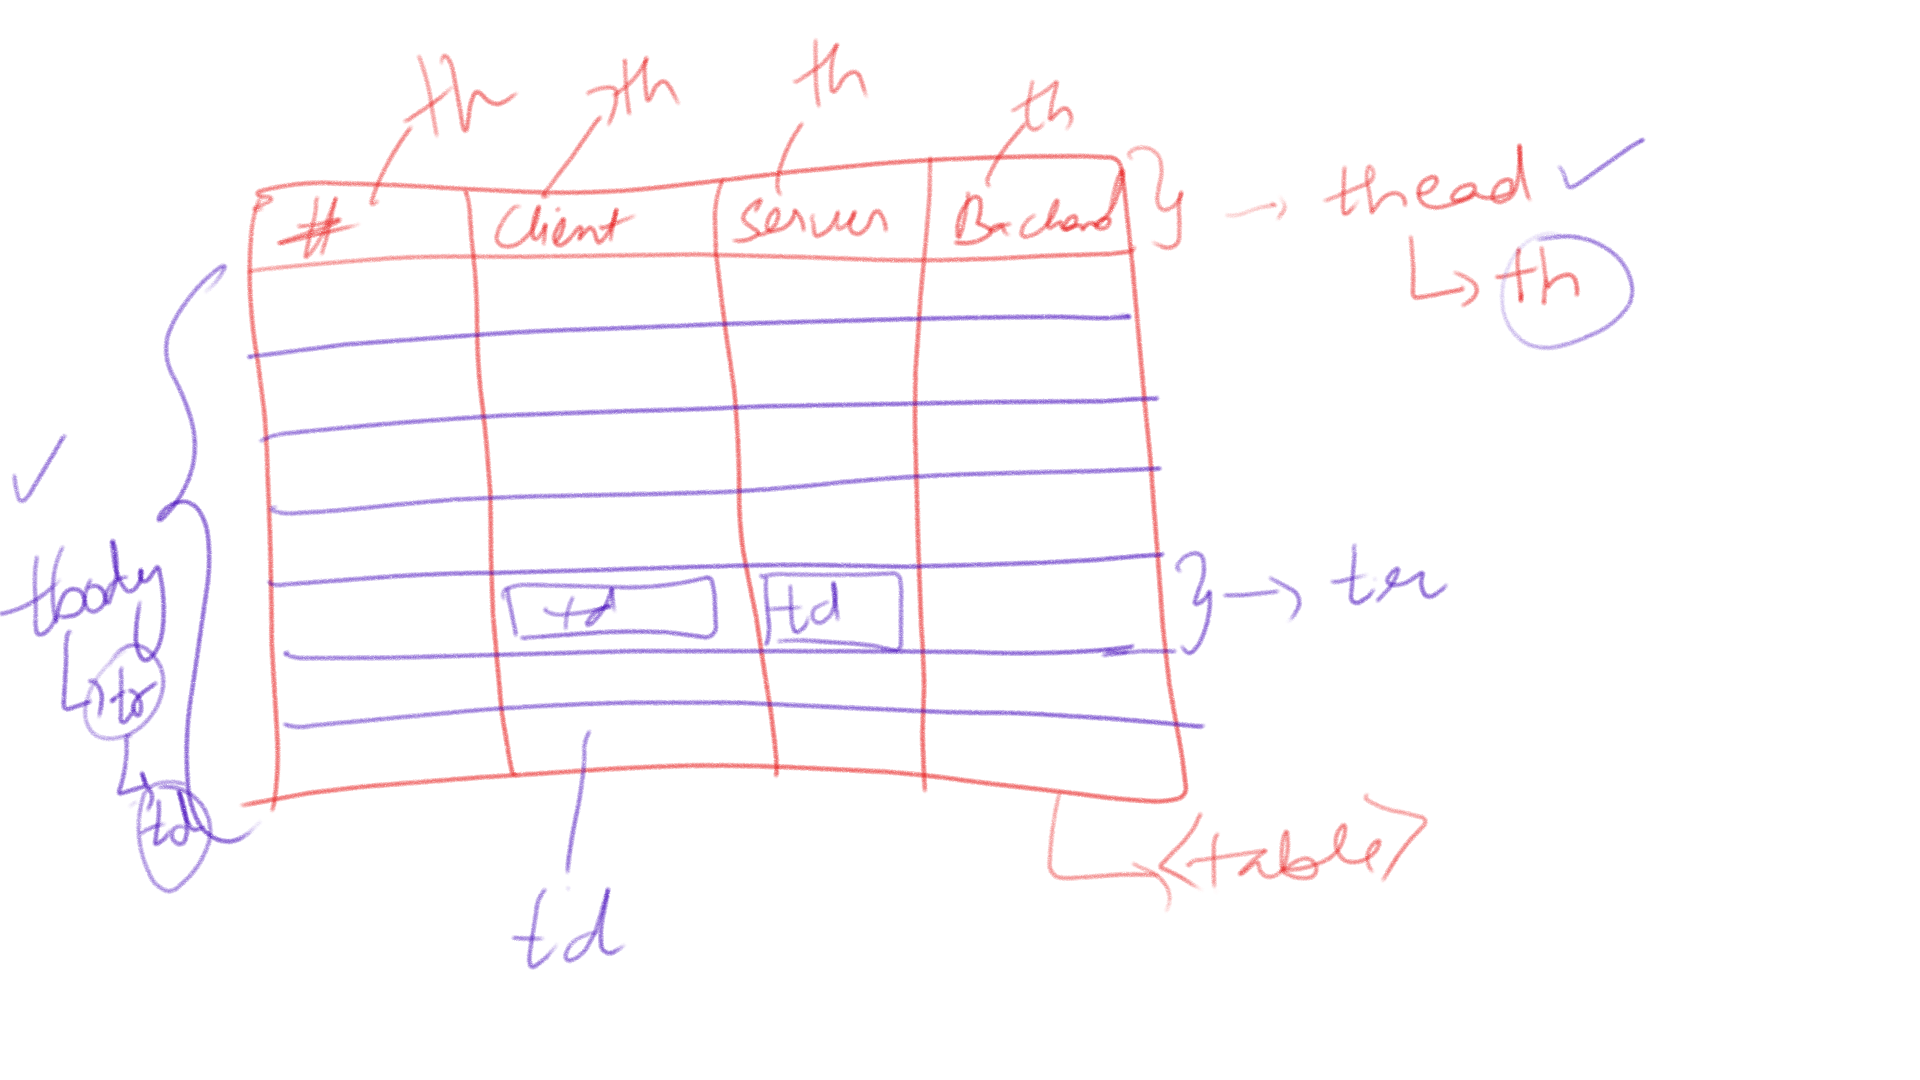 th th th th
# Client Server Backend } → thead ✓
↳ th
✓
td td } → tr
tbody
↳ tr
↳ td
↳ <table>
td